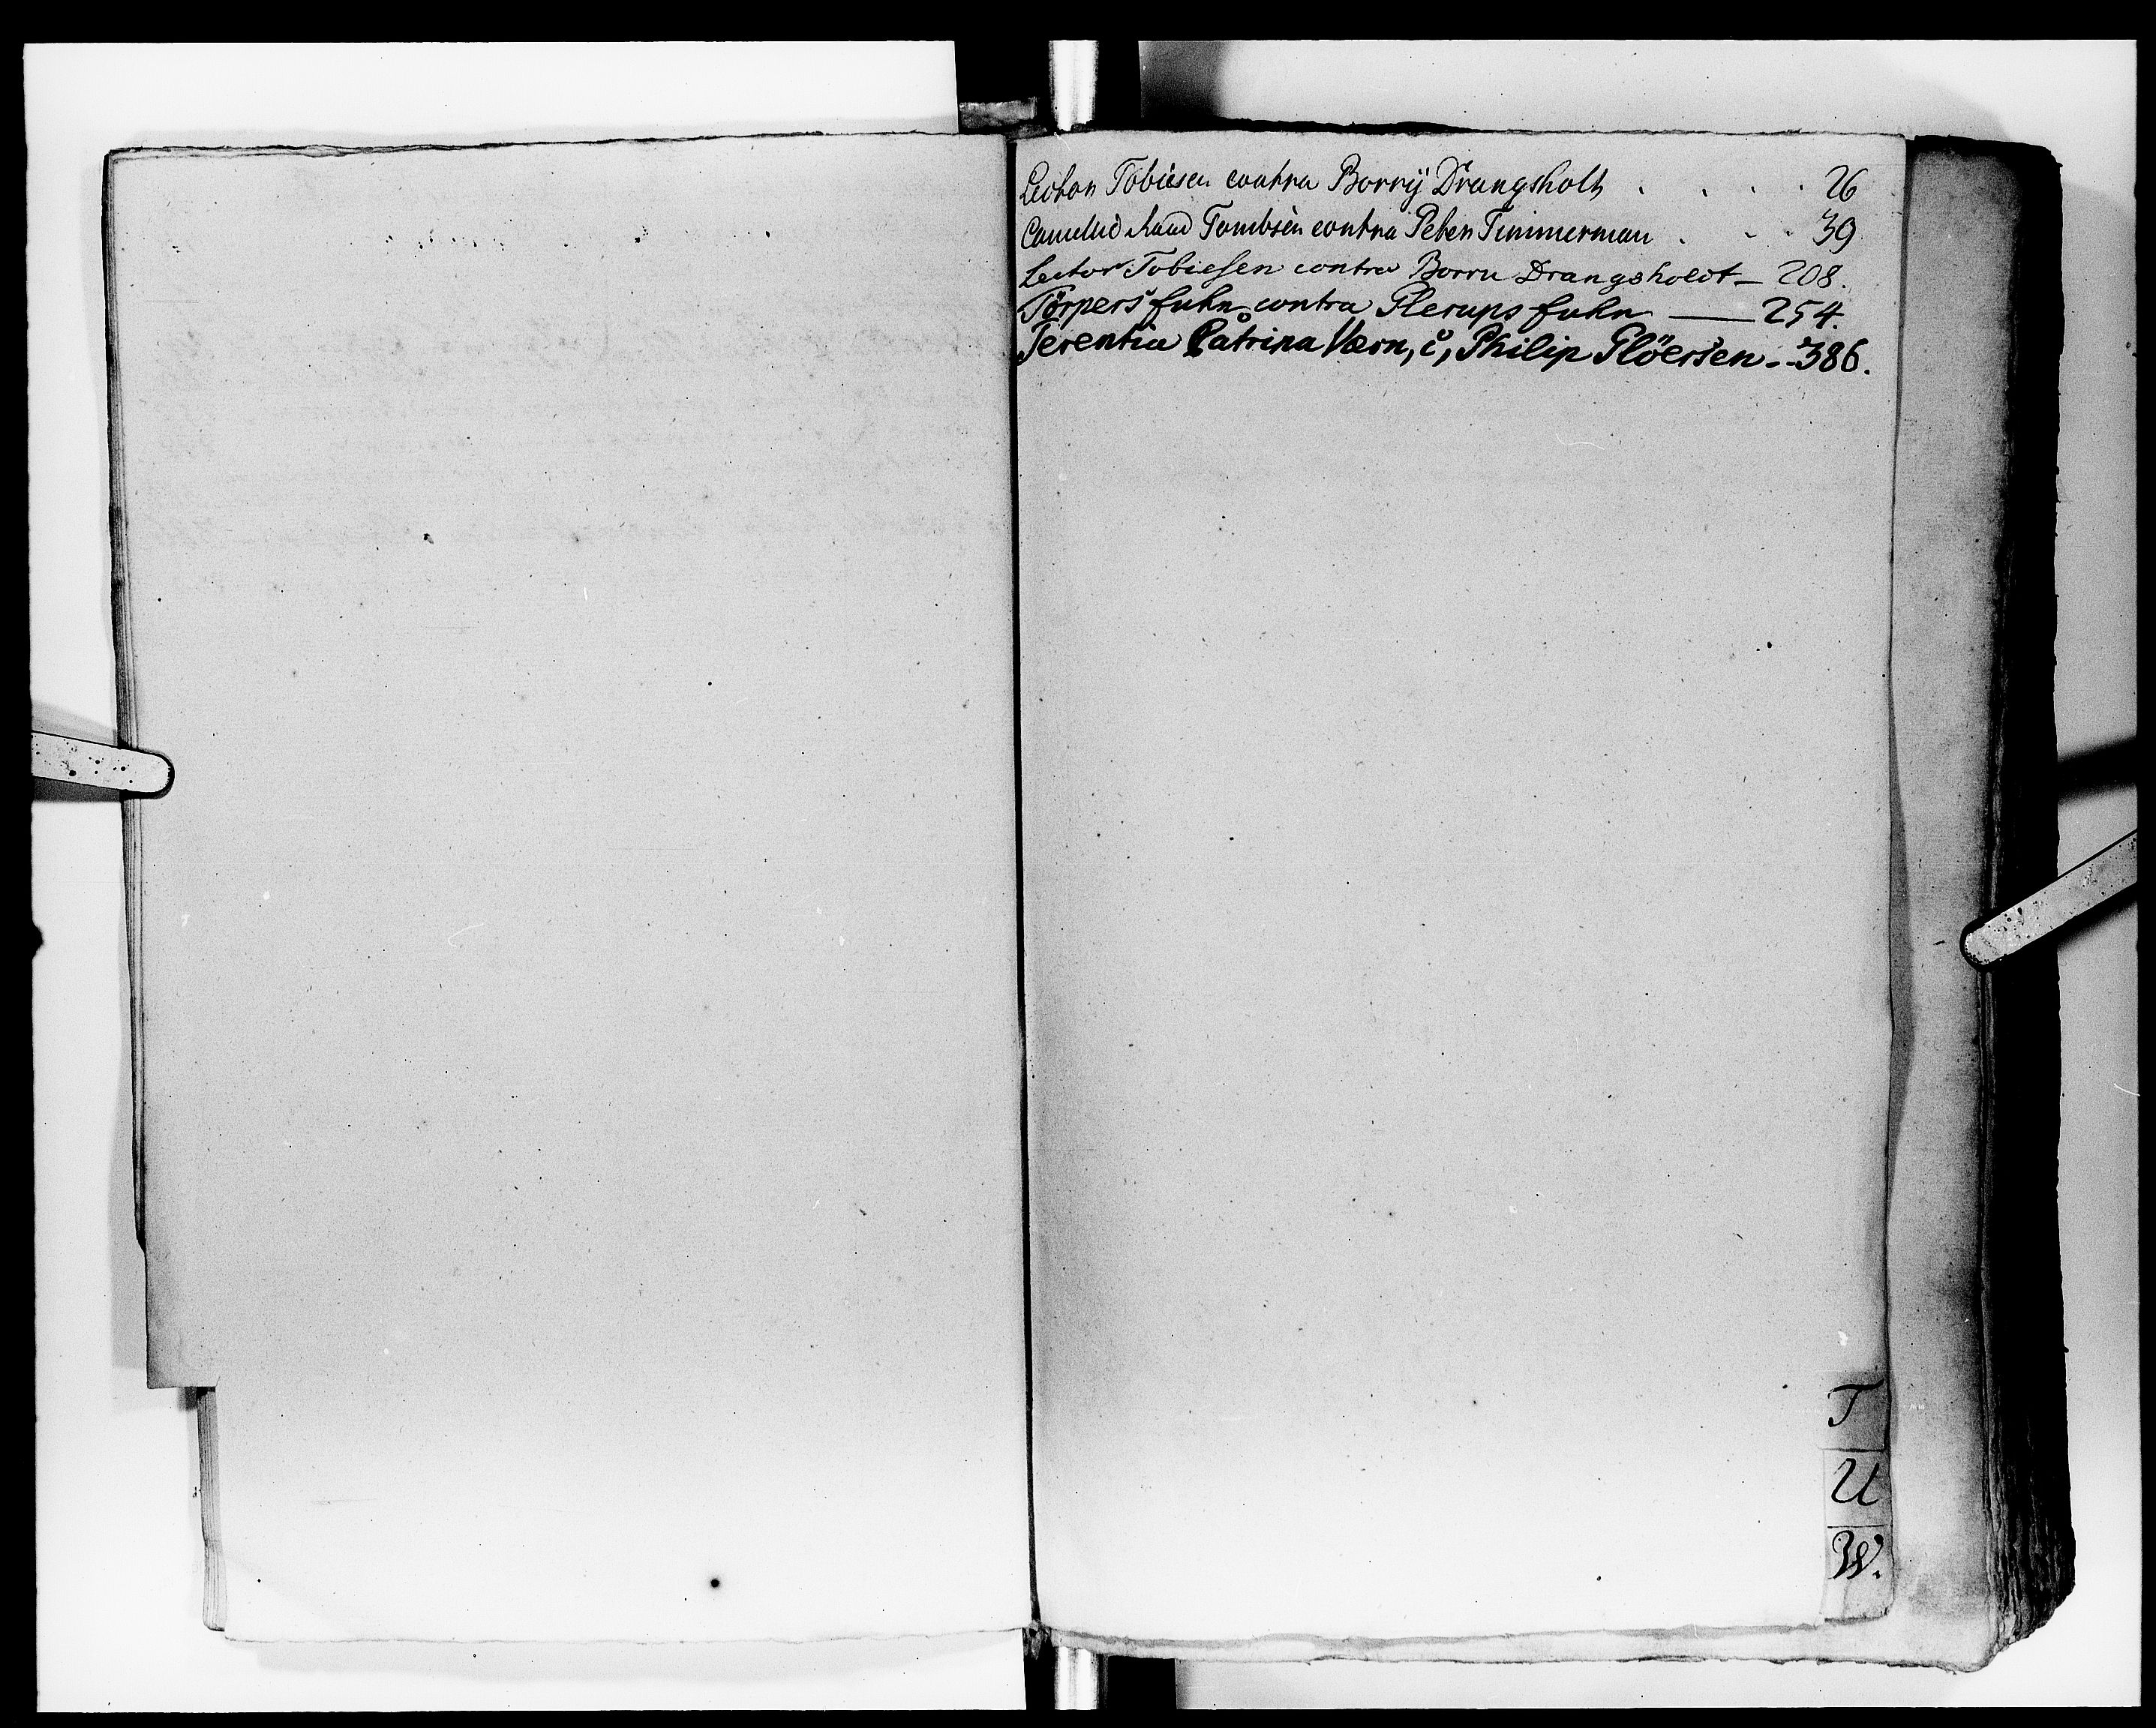 Lector Tobiesen contra Borrÿ Drangsholt . . . . 26
Cancellie Raad Tombsen contra Peter Timmerman . . . 39
Lector Tobiesen contra Borru Drangsholdt - 208.
contra Plerups — 254.
Terentia Catrina Værn, c, Philip Plöersen - 386.
T
U
W.